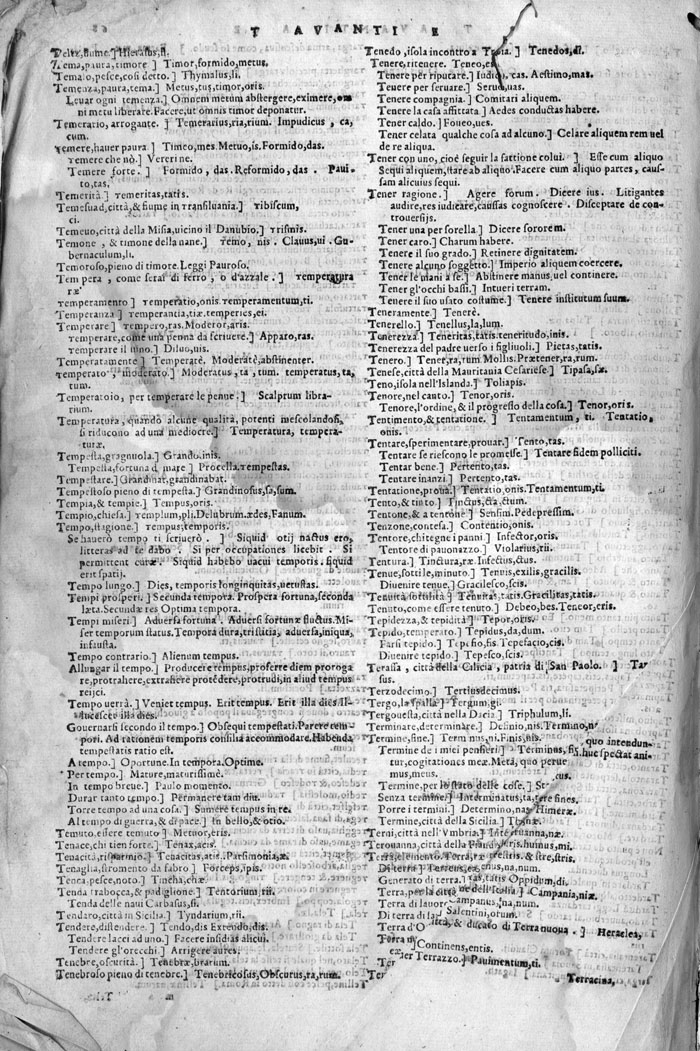 T AVANTI E
Teltz, fiume.] Hierasus, si.
Tema, paura, timore.] Timor, formido, metus.
Temalo, pesce, così detto.] Thymalus, li.
Temenza, paura, tema.] Metus, tus, timor, oris.
Leuar ogni temenza.] Omnem metum abstergere, eximere, om
ni metu liberare. Facere, ut omnis timor deponatur.
Temerario, arrogante.] Temerarius, ria, rium. Impudicus, ca,
cum.
Temere, hauer paura] Timeo, mes. Metuo, is. Formido, das.
Temere che nò.] Vereri ne.
Temere forte.] Formido, das. Reformido, das. Paui-
to, tas.
Temerità] Temeritas, tatis.
Temesuad, città, & fiume in Transiluania.] Tibiscum,
ci.
Temeuo, città della Misia, uicino il Danubio.] Trismis.
Temone, & timone della naue.] Temo, nis. Clauus, ui. Gu-
bernaculum, li.
Temoroso, pieno di timore. Leggi Pauroso.
Tempera, come seras di ferro, o d'azzale.] Temperatura
ræ
Temperamento] Temperatio, onis. Temperamentum, ti.
Temperanza] Temperantia, tiæ. temperies, ei.
Temperare] Tempero, ras. Moderor, aris.
Temperare, come una penna da scriuere.] Apparo, ras.
Temperare il uino.] Diluo, uis.
Temperatamente] Temperatè. Moderatè, abstinenter.
Temperato, moderato.] Moderatus, ta, tum. temperatus, ta,
tum.
Temperatoio, per temperare le penne;] Scalprum libra-
rium.
Temperatura, quando alcune qualità, potenti mescolandosi,
si riducono ad una mediocre.] Temperatura, tempera-
turæ.
Tempesta, gragnuola.] Grando, inis.
Tempesta, fortuna di mare] Procella. Tempestas.
Tempestare.] Grandinat, grandinabat.
Tempestoso pieno di tempesta.] Grandinosus, sa, sum.
Tempia, & tempie.] Tempus, oris.
Tempio, chiesa.] Templum, pli. Delubrum. ædes, Fanum.
Tempo, stagione.] Tempus, temporis.
Se hauerò tempo ti scriuerò.] Siquid otij nactus ero,
litteras ad te dabo. Si per occupationes licebit. Si
permittent curæ. Siquid habebo uacui temporis. siquid
erit spatij.
Tempo lungo.] Dies, temporis longinquitas, uetustas.
Tempi prosperi.] Secunda tempora. Prospera fortuna, secunda
læta. Secundæ res Optima tempora.
Tempi miseri] Aduersa fortuna. Aduersi fortunæ fluctus. Mi-
ser temporum status. Tempora dura, tristitia, aduersa, iniqua,
infausta.
Tempo contrario.] Alienum tempus.
Allungar il tempo.] Producere tempus, proferre diem proroga
re, protrahere, extrahere protēdere, protrudi, in aliud tempus
reijci.
Tempo uerrà.] Veniet tempus. Erit tempus. Erit illa dies. Il-
lucescet illa dies.
Gouernarsi secondo il tempo.] Obsequi tempestati. Parere tem-
pori. Ad rationem temporis consilia accommodare. Habenda
tempestatis ratio est.
A tempo.] Oportune. In tempora. Optime.
Per tempo.] Mature, maturissimè.
In tempo breue.] Paulo momento.
Durar tanto tempo.] Permanere tam diu.
Torre tempo ad una cosa.] Sumere tempus in re.
Al tempo di guerra, & di pace.] In bello, & otio.
Temuto, essere temuto] Metuor, eris.
Tenace, chi tien forte.] Tenax, acis.
Tenacità, risparmio.] Tenacitas, atis. Parsimonia, æ.
Tenaglia, stromento da fabro] Forceps, ipis.
Tenca, pesce, noto.] Tincha, chæ.
Tenda trabocca, & padiglione.] Tentorium, rii.
Tenda delle naui Carbasus, si.
Tendaro, città in Sicilia.] Tyndarium, rii.
Tendere, distendere.] Tendo, dis Extendo, dis.
Tendere lacci ad uno.] Facere insidias alicui.
Tendere gl'orecchi.] Arrigere aures.
Tenebre, oscurità.] Tenebræ, brarum.
Tenebroso pieno di tenebre.] Tenebricosus, Obscurus, ra, rum.
Tenedo, isola incontro a Troia.] Tenedos, di.
Tenere, ritenere.] Teneo, es
Tenere per riputare.] Iudico, cas. Aestimo, mas.
Tenere per seruare.] Seruo, uas.
Tenere compagnia.] Comitari aliquem.
Tenere la casa affittata] Aedes conductas habere.
Tener caldo.] Foueo, ues.
Tener celata qualche cosa ad alcuno.] Celare aliquem rem uel
de re aliqua.
Tener con uno, cioè seguir la fattione colui.] Esse cum aliquo
Sequi aliquem, stare ab aliquo. Facere cum aliquo partes, cauf-
sam alicuius sequi.
Tener ragione.] Agere forum. Dicere ius. Litigantes
audire, res iudicare, caussas cognoscere. Disceptare de con-
trouersijs.
Tener una per sorella.] Dicere sororem.
Tener caro.] Charum habere.
Tenere il suo grado.] Retinere dignitatem.
Tenere alcuno soggetto.] Imperio aliquem coercere.
Tener le mani a se.] Abstinere manus, uel continere.
Tener gl'occhi bassi.] Intueri terram.
Tenere il suo usato costume.] Tenere institutum suum.
Teneramente.] Tenerè.
Tenerello.] Tenellus, la, lum.
Tenerezza] Teneritas, tatis. teneritudo, inis.
Tenerezza del padre uerso i figliuoli.] Pietas, tatis.
Tenero.] Tener, ra, rum. Mollis. Prætener, ra, rum.
Tenese, città della Mauritania Cesariese.] Tipasa, sæ.
Teno, isola nell'Islanda.] Toliapis.
Tenore, nel canto.] Tenor, oris.
Tenore, l'ordine, & il progresso della cosa.] Tenor, oris.
Tentimento, & tentatione.] Tentamentum, ti. Tentatio,
onis.
Tentare, sperimentare, prouar.] Tento, tas.
Tentare se riescono le promesse.] Tentare fidem polliciti.
Tentar bene.] Pertento, tas.
Tentare inanzi.] Pertento, tas.
Tentatione, proua.] Tentatio, onis. Tentamentum, ti.
Tento, & tinto.] Tinctus, cta, ctum.
Tentone, & a tentone] Sensim. Pedepressim.
Tenzone, contesa.] Contentio, onis.
Tentore, chi tegne i panni] Infector, oris.
Tentore di pauonazzo.] Violarius, rii.
Tentura.] Tinctura, ræ. Infectus, ctus.
Tenue, sottile, minuto.] Tenuis, exilis, gracilis.
Diuenire tenue.] Gracilesco, scis.
Tenuità sottilità] Tenuitas, tatis. Gracilitas, tatis.
Tenuto, come essere tenuto.] Debeo, bes. Teneor, eris.
Tepidezza, & tepidità] Tepor, oris.
Tepido, temperato.] Tepidus, da, dum.
Farsi tepido.] Tepefio, fis. Tepefacio, cis.
Diuenire tepido.] Tepesco, scis.
Terassa, città della Cilicia, patria di San Paolo.] Tar
sus.
Terzodecimo.] Tertiusdecimus.
Tergo, la spalla] Tergum, gi.
Tergouesta, città nella Dacia] Triphulum, li.
Terminare, determinare.] Definio, nis. Termino, na
Termine, fine.] Terminus, ni. Finis, nis.
Termine de i miei pensieri] Terminus, fi
quo intendun-
huc spectat ani-
tur, cogitationes meæ. Meta, quo perue
mus, meus.
cus.
Termine, per lo stato delle cose.] St
Senza termine] Interminatus, ta, fere fines.
Porre i termini] Determino, nas Himeræ.
Termine, città della Sicilia] Thernæ.
Terni, città nell'Vmbria.] Interamna, næ.
Terouanna, città della Fran
Terra, elemento. Terra, ræ
Di terra] Terreus, ea
Generato di terra.]
tatis Oppidum, di.
Terra, per la città
ne dell'Sicilia] Campania, niæ.
Terra di lauor
Campanus, na, num.
Di terra di la
Salentini, orum.
Terra d'O
ittà, & ducato di Terra nuoua.] Heraclea,
Terra
Continens, entis.
Ter
er Terrazzo.] Pauimentum, ti.
Ter
Terracina,